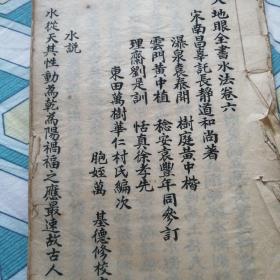 天地眼全書水法卷六
宋南昌辜託長靜道和尚著
瀑泉袁泰開 樹庭黃中楷
雲門黃中植 稔安袁豐年同參訂
理齋劉是訓 恬真徐孝先
東田萬樹華仁村氏編次
胞姪萬 基德修校
水説
水從天其性動為乾為陽禍福之應最速故古人